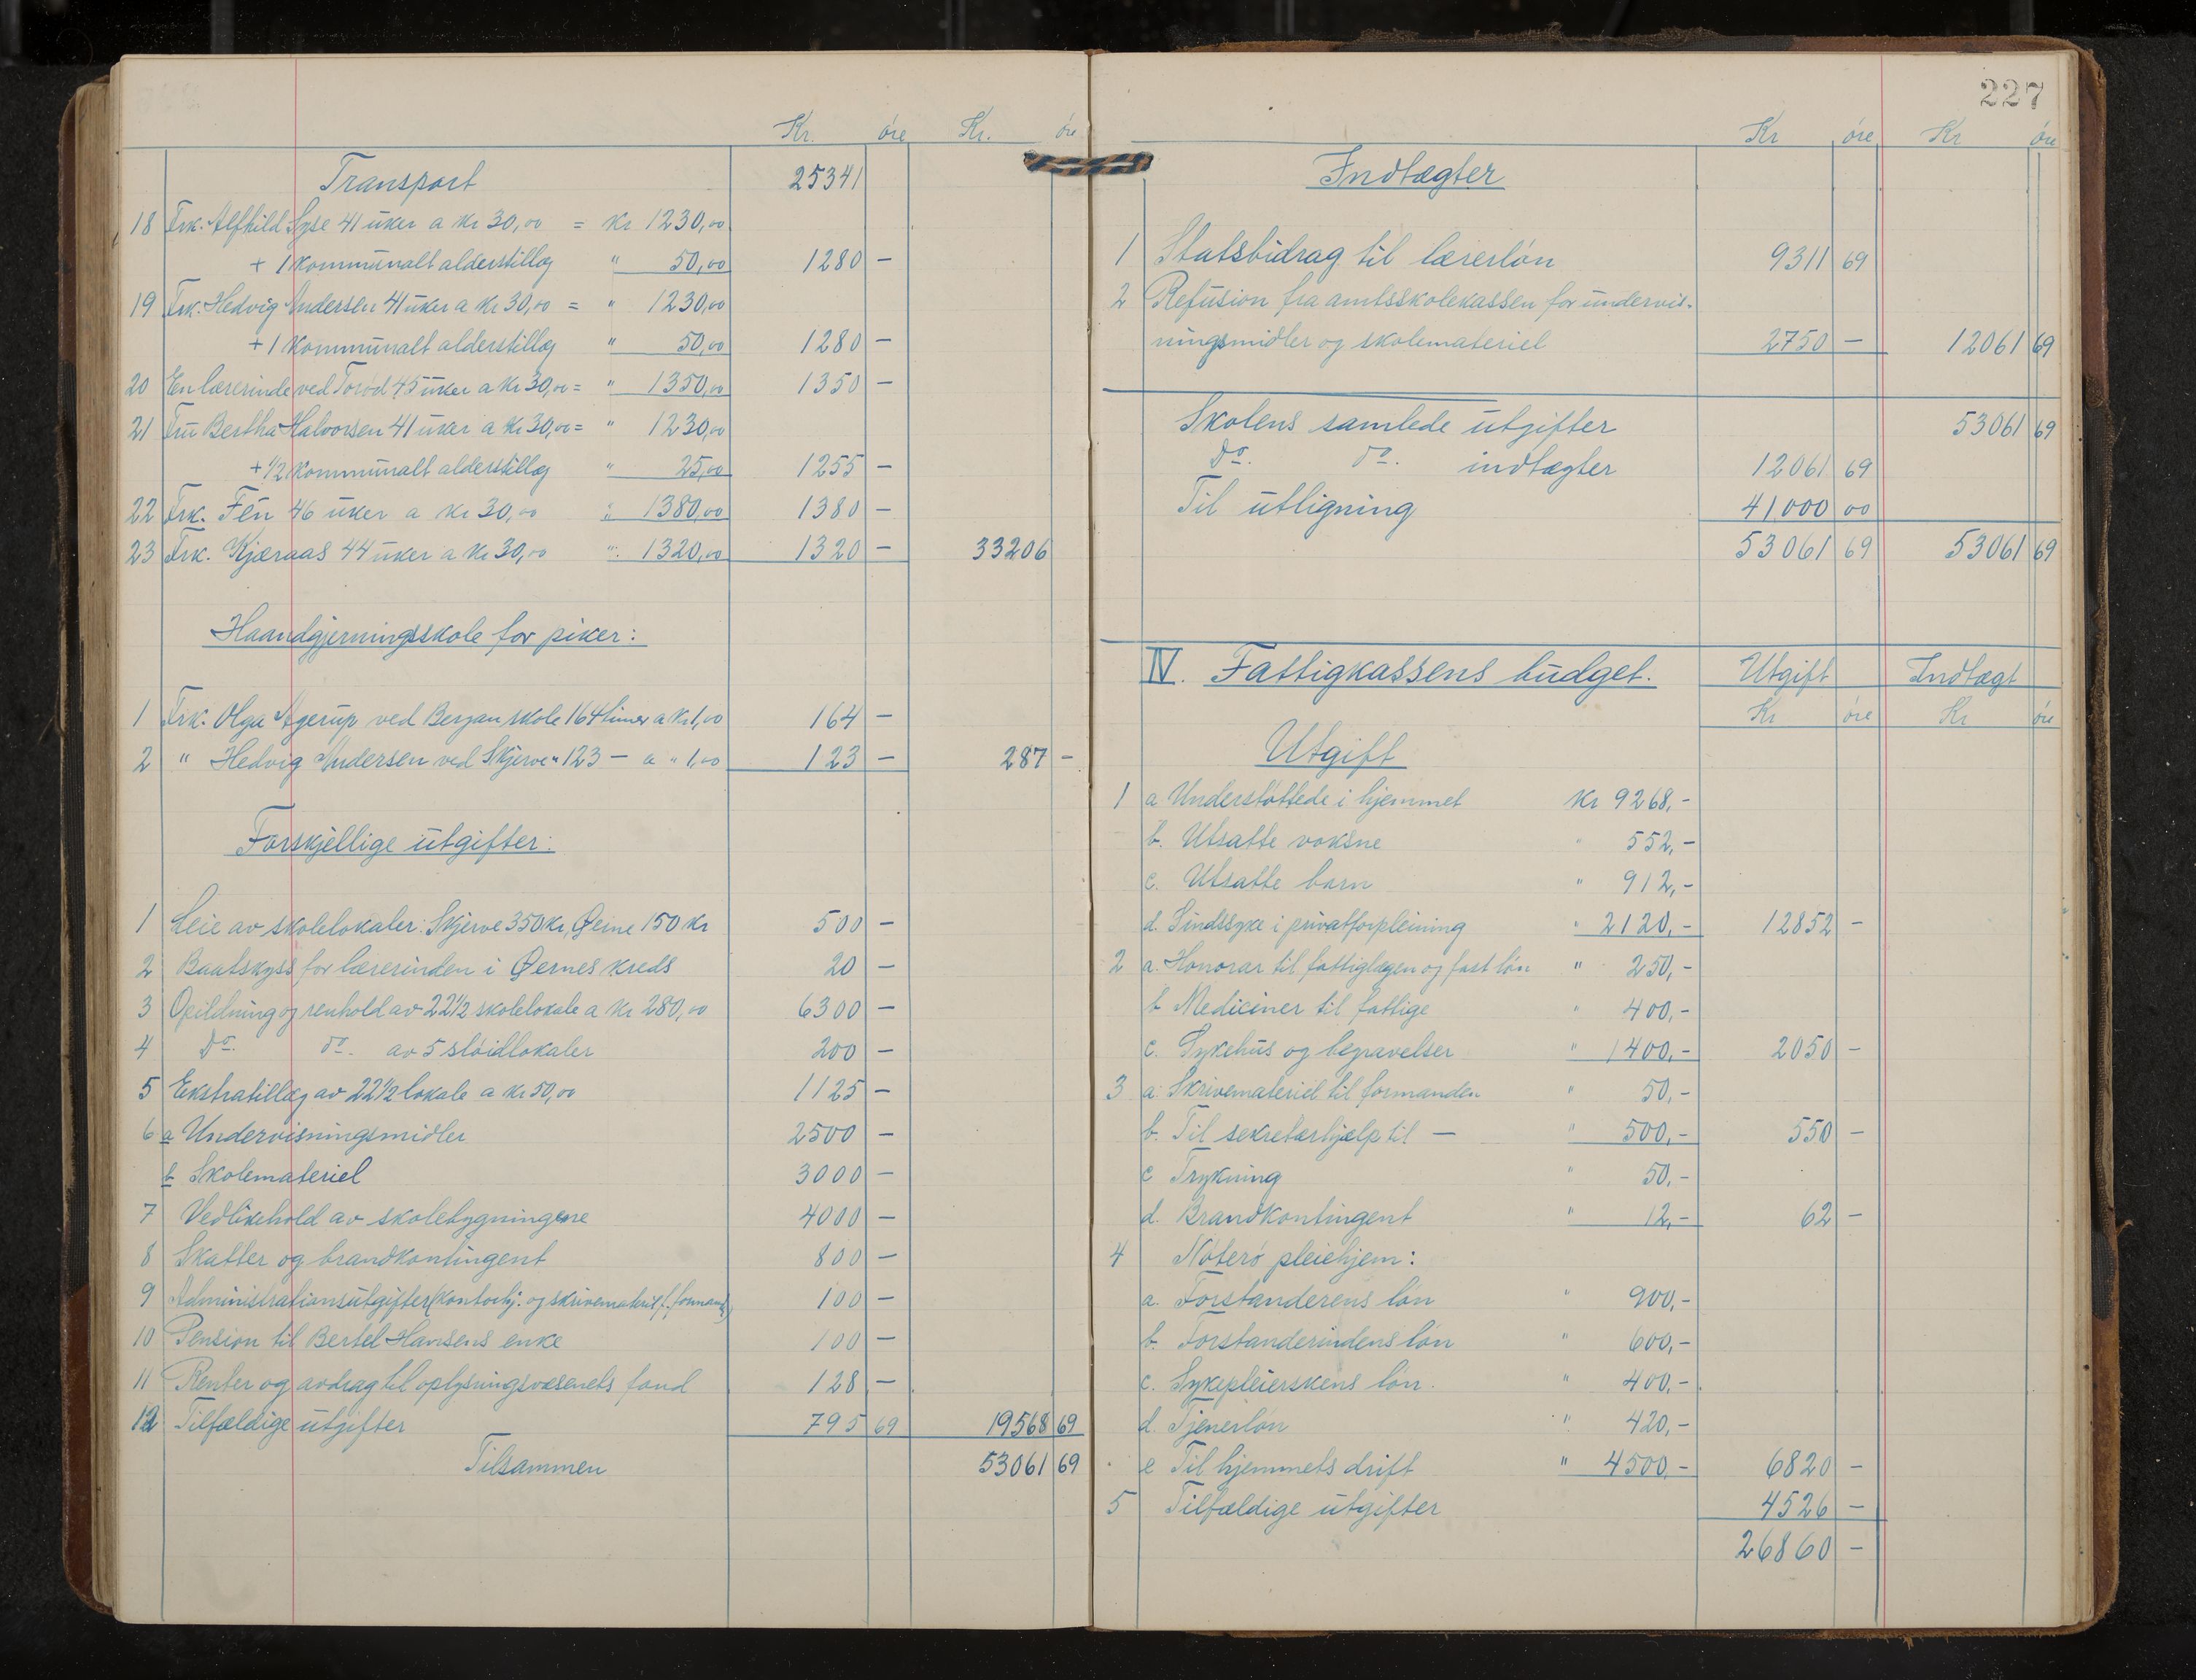 Kr. øre Kr. øre
Transport 25341
18 Frk. Alfhild Syse 41 uker a kr 30,00 = kr 1230,00
+ 1 kommunalt alderstillæg " 50,00 1280 —
19 Frk. Hedvig Andersen 41 uker a kr 30,00 = " 1230,00
+ 1 kommunalt alderstillæg " 50,00 1280 —
20 En lærerinde ved Torød 45 uker a kr 30,00 = " 1350,00 1350 —
21 Fru Bertha Halvorsen 41 uker a kr 30,00 = " 1230,00
+ 1/2 kommunalt alderstillæg " 25,00 1255 —
22 Frk. Fén 46 uker a kr 30,00 " 1380,00 1380 —
23 Frk. Kjæraas 44 uker a kr 30,00 " 1320,00 1320 — 33206
Haandgjerningsskole for piker:
1 Frk. Olga Agerup ved Bergan skole 164 timer a kr 1,00 164 —
2 " Hedvig Andersen ved Skjerve " 123 — a " 1,00 123 — 287 —
Forskjellige utgifter:
1 Leie av skolelokaler: Skjerve 350 kr, Øeine 150 kr 500 —
2 Baatskyss for lærerinden i Øernes kreds 20 —
3 Opildning og renhold av 22 1/2 skolelokale a kr 280,00 6300 —
4 Do. do. av 5 sløidlokaler 200 —
5 Ekstratillæg av 22 1/2 lokale a kr 50,00 1125 —
6 a Undervisningsmidler 2500 —
b Skolemateriel 3000 —
7 Vedlikehold av skolebygningene 4000 —
8 Skatter og brandkontingent 800 —
9 Administrationsutgifter (kontorhj. og skrivemateriel f. formand) 100 —
10 Pension til Bertel Hansens enke 100 —
11 Renter og avdrag til oplysningsvæsenets fond 128 —
12 Tilfældige utgifter 795 69 19568 69
Tilsammen 53061 69
227
Kr øre Kr øre
Indtægter
1 Statsbidrag til lærerløn 9311 69
2 Refusion fra amtsskolekassen for undervis-
ningsmidler og skolemateriel 2750 — 12061 69
Skolens samlede utgifter 53061 69
Do. do. indtægter 12061 69
Til utligning 41000 00
53061 69 53061 69
IV. Fattigkassens budget. Utgift Indtægt
Kr øre Kr øre
Utgift
1 a Understøttede i hjemmet kr 9268,-
b. Utsatte voksne " 552,-
c. Utsatte barn " 912,-
d. Sindssyke i privatforpleining " 2120,- 12852 —
2 a. Honorar til fattiglægen og fast løn " 250,-
b Mediciner til fattige " 400,-
c. Sykehus og begravelser " 1400,- 2050 —
3 a. Skrivemateriel til formanden " 50,-
b. Til sekretærhjælp til — " 500,- 550 —
c Trykning " 50,-
d. Brandkontingent " 12,- 62 —
4 Nøterø pleiehjem:
a. Forstanderens løn " 900,-
b. Forstanderindens løn " 600,-
c. Sykepleierskens løn. " 400,-
d. Tjenerløn " 420,-
e Til hjemmets drift " 4500,- 6820 —
5 Tilfældige utgifter 4526 —
26860 —